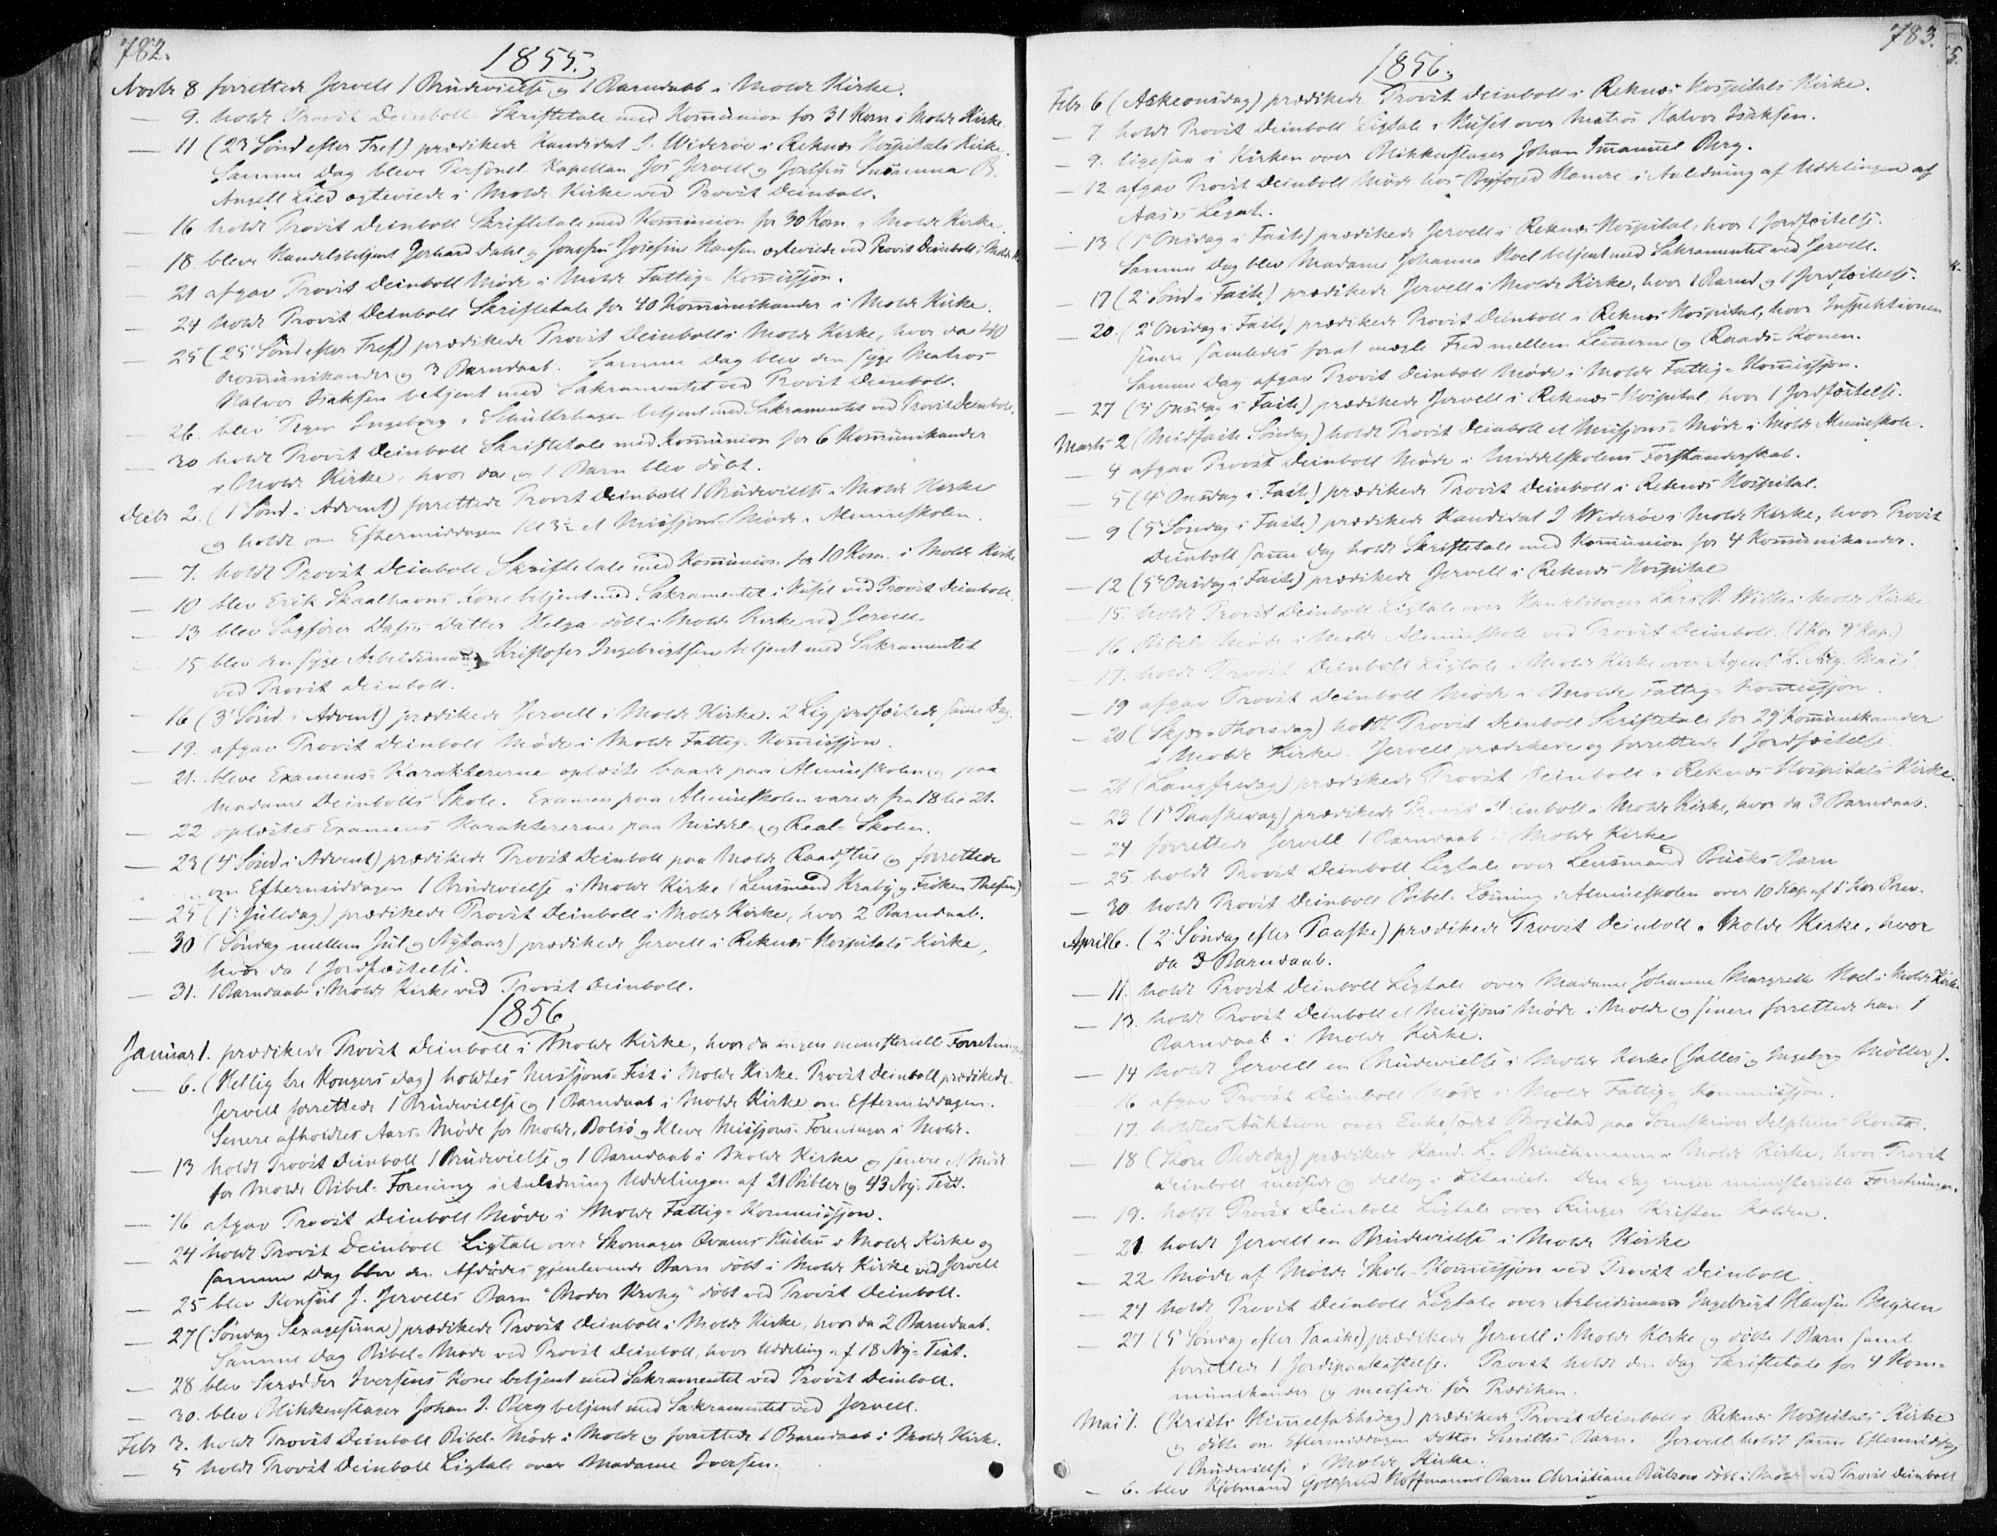 782.
1855.
Novbr 8 forrettede Jervell 1 Brudevielse og 1 Barndaab i Molde Kirke.
— 9. holdt Provst Deinboll Skriftetale med Kommunion for 31 Kom i Molde Kirke.
— 11 (23 Sønd efter Tref) prædikede Kandidat J. Widerøe i Reknæs Hospitals Kirke.
Samme Dag bleve Personel Kapellan Jervell og Susanna B.
Angell Lied ægteviede i Molde Kirke ved Provst Deinboll.
— 16 holdt Provst Deinboll Skriftetale med Kommunion for 30 Kom i Molde Kirke.
— 18. bleve Handelsbetjent Gerhard Dahl og Josefine Hansen ægteviede ved Provst Deinboll i Molde K
— 21 afgav Provst Deinboll Møde i Molde Fattig-Kommissjon.
— 24 holdt Provst Deinboll Skriftetale for 40 Kommunikander i Molde Kirke.
— 25 (25 Sønd efter Tref) prædikede Provst Deinboll i Molde Kirke, hvor da 40
Kommunikander og 3 Barndaab. Samme Dag blev den syge Matros
Halvor Isaksen betjent med Sakramentet ved Provst Deinboll.
— 26. blev Pigen Ingeborg i betjent med Sakramentet ved Provst Deinboll.
— 30 holdt Provst Deinboll Skriftetale med Kommunion for 6 Kommunikander
i Molde Kirke, hvor da og 1 Barn blev døbt.
Decbr 2. (1 Sønd i Advent) forrettede Provst Deinboll 1 Brudevielse i Molde Kirke
og holdt om Eftermiddagen Kl 3½ et Missjons-Møde i Almueskolen.
— 7. holdt Provst Deinboll Skriftetale med Kommunion for 10 Kom. i Molde Kirke
— 10 blev Erik Skaalhavns Kone betjent med Sakramentet i Huset ved Provst Deinboll.
— 13 blev Sagfører Datter Helga døbt i Molde Kirke ved Jervell
— 15 blev den syge Arbeidsmand Kristofer Ingebrigtsen betjent med Sakramentet
ved Provst Deinboll.
— 16 (3 Sønd i Advent) prædikede Jervell i Molde Kirke. 2 Lig jordfæstede samme Dag.
— 19. afgav Provst Deinboll Møde i Molde Fattig-Kommissjon.
— 21. bleve Examens-Karaktererne oplæste baade paa Almueskolen og paa
Madame Deinbolls Skole. Examen paa Almueskolen varede fra 18 til 21.
— 22 oplæstes Examens Karaktererne paa Middel- og Real-Skolen.
— 23 (4 Sønd i Advent) prædikede Provst Deinboll paa Molde Raadstue og forrettede
om Eftermiddagen 1 Brudevielse i Molde Kirke (Lensmand Kraby og Frøken Thesen)
— 25 (1 Juledag) prædikede Provst Deinboll i Molde Kirke, hvor 2 Barndaab.
— 30 (Søndag mellem Jul og Nytaar) prædikede Jervell i Reknæs Hospitals-Kirke,
hvor da 1 Jordfæstelse.
— 31. 1 Barndaab i Molde Kirke ved Provst Deinboll.
1856
Januar 1. prædikede Provst Deinboll i Molde Kirke, hvor da ingen ministerielle Forretninger
— 6. (Hellig tre Kongers dag) holdtes Missjons-Fest i Molde Kirke. Provst Deinboll prædikede.
Jervell forrettede 1 Brudevielse og 1 Barndaab i Molde Kirke om Eftermiddagen.
Senere afholdtes Aars-Møde for Molde, Bolsø og Kleve Missjons-Foreninger i Molde.
— 13 holdt Provst Deinboll 1 Brudevielse og 1 Barndaab i Molde Kirke og senere et Møde
for Molde Bibel-Forening i Anledning Uddelingen af 21 Bibler og 43 Ny-Test.
— 16 afgav Provst Deinboll Møde i Molde Fattig-Kommissjon.
— 24 holdt Provst Deinboll Ligtale over Skomager Hustru i Molde Kirke og
samme Dag blev den Afdødes gjenlevende Barn døbt i Molde Kirke ved Jervell
— 25 blev Konsul J. Jervells Barn "Broder Krohg" døbt ved Provst Deinboll.
— 27 (Søndag Sexagesima) prædikede Provst Deinboll i Molde Kirke, hvor da 2 Barndaab.
Samme Dag Bibel-Møde ved Provst Deinboll, hvor Uddeling af 18 Ny-Test.
— 28 blev Skrædder Iversens Kone betjent med Sakramentet ved Provst Deinboll.
— 30. blev Blikkenslager Johan I. Berg betjent med Sakramentet ved Jervell.
Febr 3. holdt Provst Deinboll Bibel Møde i Molde og forrettede 1 Barndaab i Molde Kirke.
— 5 holdt Provst Deinboll Ligtale over Madame Iversen.
783.
1856.
Febr. 6 (Askeonsdag) prædikede Provst Deinboll i Reknæs Hospitals Kirke.
— 7 holdt Provst Deinboll Ligtale i Huset over Matros Halvor Isaksen.
— 9. ligesaa i Kirken over Blikkenslager Johan Immanuel Berg.
— 12 afgav Provst Deinboll Møde hos Byfoged i Anledning af Uddelingen af
Legat.
— 13 (1 Onsdag i Faste) prædikede Jervell i Reknæs Hospital, hvor 1 Jordfæstelse.
Samme Dag blev Madame Johanna Moel betjent med Sakramentet ved Jervell.
— 17 (2 Sønd i Faste) prædikede Jervell i Molde Kirke, hvor 1 Barnd og 1 Jordfæstelse.
— 20. (2 Onsdag i Faste) prædikede Provst Deinboll i Reknæs Hospital, hvor Inspektionen
senere samledes forat mægle Fred mellem Lemmerne og Raads-Konen.
Samme Dag afgav Provst Deinboll Møde i Molde Fattig-Kommissjon.
— 27 (3 Onsdag i Faste) prædikede Jervell i Reknæs Hospital, hvor 1 Jordfæstelse.
Marts 2 (Midfaste Søndag) holdt Provst Deinboll et Missjons-Møde i Molde Almueskole.
— 4 afgav Provst Deinboll Møde i Middelskolens Forstanderskab.
— 5 (4 Onsdag i Faste) prædikede Provst Deinboll i Reknæs Hospital.
— 9 (5 Søndag i Faste) prædikede Kandidat J Widerøe i Molde Kirke, hvor Provst
Deinboll samme Dag holdt Skriftetale med Kommunion for 4 Kommunikander.
— 12 (5 Onsdag i Faste) prædikede Jervell i Reknæs Hospital
— 15. holdt Provst Deinboll Ligtale over Handelsborger Lars With i Molde Kirke
— 16 Bibel Møde i Molde Almueskole ved Provst Deinboll. (1 Kor 9 Kap.)
— 17. holdt Provst Deinboll Ligtale i Molde Kirke over Agent L.
— 19 afgav Provst Deinboll Møde i Molde Fattig-Kommissjon.
— 20 (Skjær-Thorsdag) holdt Provst Deinboll Skriftetale for 29 Kommunikander
i Molde Kirke. Jervell prædikede og forrettede 1 Jordfæstelse.
— 21 (Langfredag) prædikede Provst Deinboll i Reknæs Hospitals Kirke.
— 23 (1 Paaskedag) prædikede Provst Deinboll i Molde Kirke, hvor da 3 Barndaab.
— 24 forrettede Jervell 1 Barndaab i Molde Kirke
— 25. holdt Provst Deinboll Ligtale over Lensmand Barn
— 30. holdt Provst Deinboll Bibel-Læsning i Almueskolen over 10 Kap af 1 Kor Brev.
April 6. (2 Søndag efter Paaske) prædikede Provst Deinboll i Molde Kirke, hvor
da 3 Barndaab.
— 11. holdt Provst Deinboll Ligtale over Madame Johanna Margrethe Moel i Molde Kirke
— 13. holdt Provst Deinboll et Missjons Møde i Molde og senere forrettede han 1
Barndaab i Molde Kirke.
— 14 holdt Jervell en Brudevielse i Molde Kirke (Salles og Ingeborg Møller).
— 16 afgav Provst Deinboll Møde i Molde Fattig-Kommissjon.
— 17. holdtes Auktion over Enkesædet paa Sorenskriver Delphins Kontor.
— 18 (Store Bededag) prædikede Kand. L. Brinchmann i Molde Kirke, hvor Provst
Deinboll messede og deltog i Litaniet. Den Dag ingen ministerielle Forretninger.
— 19. holdt Provst Deinboll Ligtale over Ringer Kristen Holden.
— 21 holdt Jervell en Brudevielse i Molde Kirke
— 22 Møde af Molde Skole-Kommissjon ved Provst Deinboll.
— 24 holdt Provst Deinboll Ligtale over Arbeidsmand Ingebrigt Hansen
— 27 (5 Søndag efter Paaske) prædikede Jervell i Molde Kirke og døbte 1 Barn samt
forrettede 1 Jordspaakastelse. Provst holdt den Dag Skriftetale for 4 Kom-
munikander og messede før Prædiken.
Mai 1. (Kristi Himmelfartsdag) prædikede Provst Deinboll i Reknæs Hospitals Kirke
og døbte om Eftermiddagen Doktor Smiths Barn. Jervell holdt samme Eftermiddag
1 Brudevielse i Molde Kirke.
— 6. blev Kjøbmand Gottfried Hoffmanns Barn Christiane Bülzow døbt i Molde ved Provst Deinboll